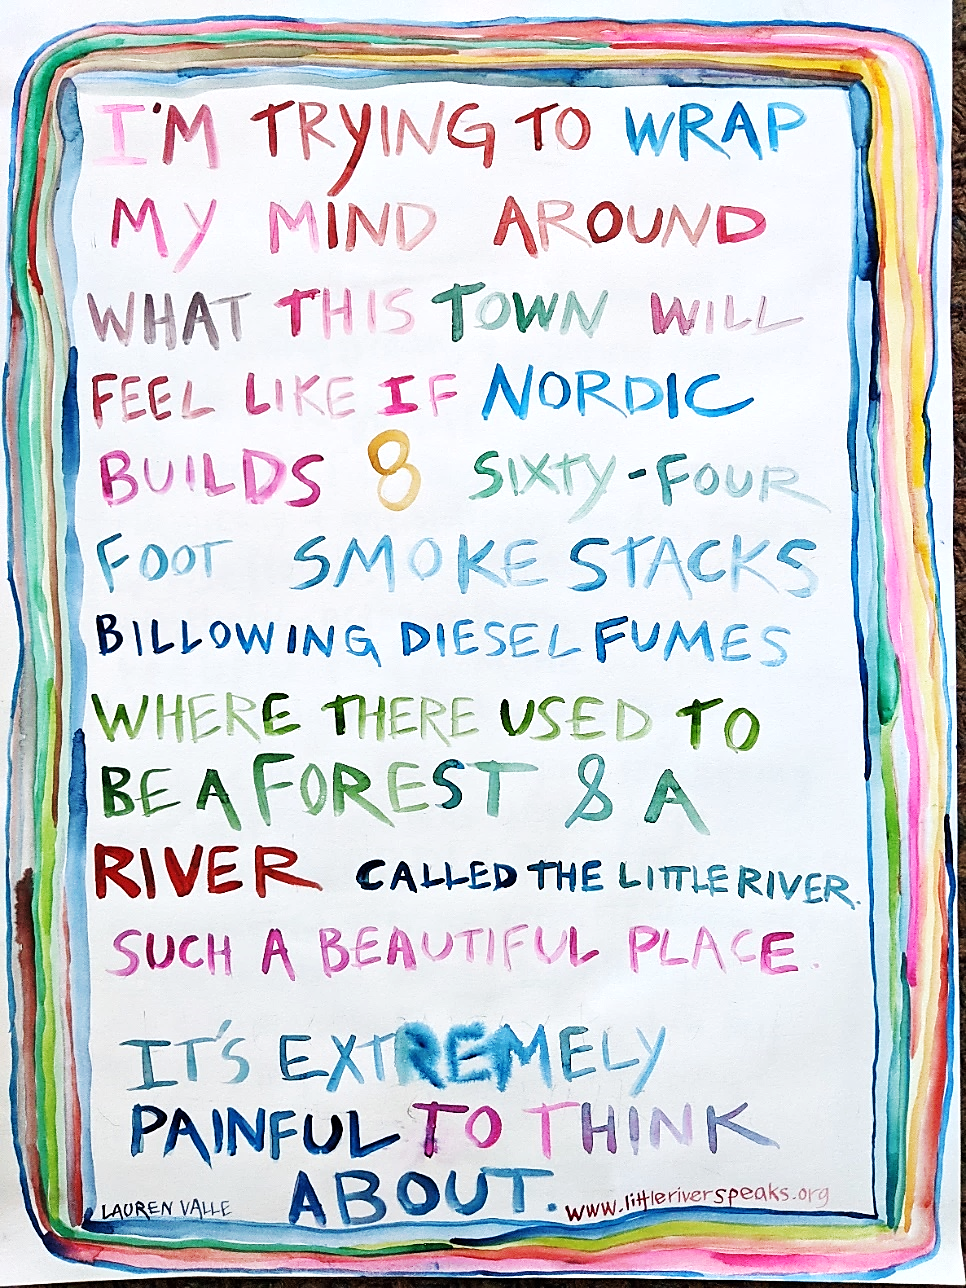 I'M TRYING TO WRAP
MY MIND AROUND
WHAT THIS TOWN WILL
FEEL LIKE IF NORDIC
BUILDS 8 SIXTY-FOUR
FOOT SMOKE STACKS
BILLOWING DIESEL FUMES
WHERE THERE USED TO
BE A FOREST & A
RIVER CALLED THE LITTLE RIVER.
SUCH A BEAUTIFUL PLACE.
IT'S EXTREMELY
PAINFUL TO THINK
ABOUT.
LAUREN VALLE
www.littleriverspeaks.org